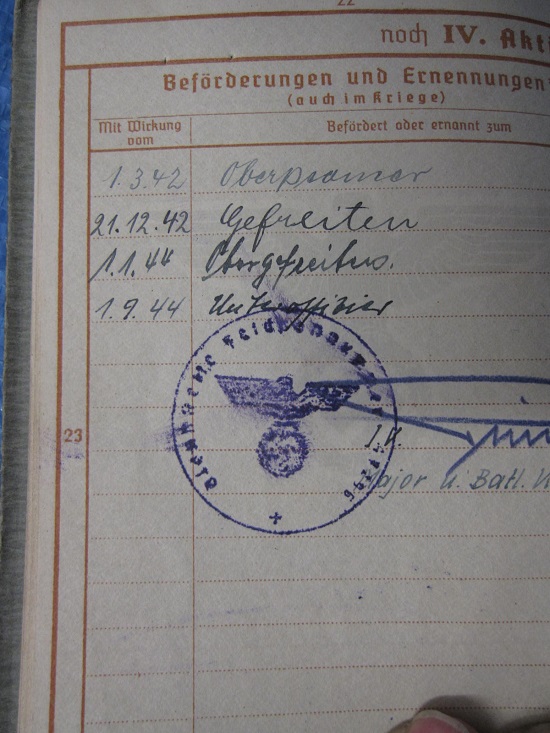 22
noch IV. Akti
Beförderungen und Ernennungen
(auch im Kriege)
Mit Wirkung vom
Befördert oder ernannt zum
1.3.42 Oberpionier
21.12.42 Gefreiten
1.1.44 Obergefreiten.
1.9.44 Unteroffizier
Dienststelle Feldpostnummer
23
I.V.
Major u. Batl.